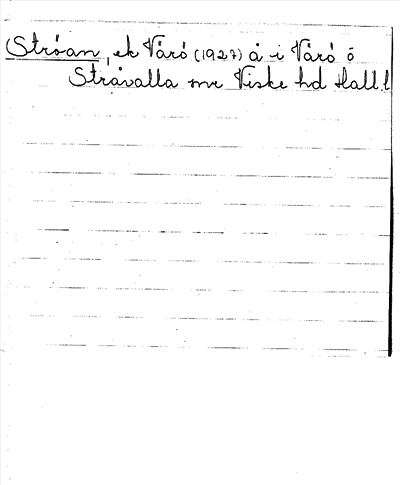 Stróan, ek Väró (1927) å i Väró ö
Strávalla snr Viske hd Hall. l